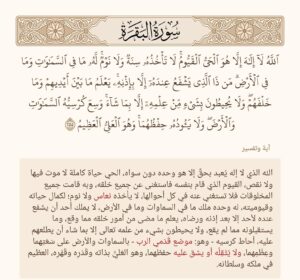 سُورَةُ البَقَرَةِ
ٱللَّهُ لَآ إِلَٰهَ إِلَّا هُوَ ٱلْحَىُّ ٱلْقَيُّومُ لَا تَأْخُذُهُۥ سِنَةٌ وَلَا نَوْمٌ لَّهُۥ مَا فِى ٱلسَّمَٰوَٰتِ وَمَا
فِى ٱلْأَرْضِ مَن ذَا ٱلَّذِى يَشْفَعُ عِندَهُۥٓ إِلَّا بِإِذْنِهِۦ يَعْلَمُ مَا بَيْنَ أَيْدِيهِمْ وَمَا
خَلْفَهُمْ وَلَا يُحِيطُونَ بِشَىْءٍ مِّنْ عِلْمِهِۦٓ إِلَّا بِمَا شَآءَ وَسِعَ كُرْسِيُّهُ ٱلسَّمَٰوَٰتِ
وَٱلْأَرْضَ وَلَا يَـُٔودُهُۥ حِفْظُهُمَا وَهُوَ ٱلْعَلِىُّ ٱلْعَظِيمُ ٢٥٥
آية وتفسير
الله الذي لا إله يُعبد بحقٍّ إلا هو وحده دون سواه، الحي حياة كاملة لا موت فيها
ولا نقص، القيوم الذي قام بنفسه فاستغنى عن جميع خلقه، وبه قامت جميع
المخلوقات فلا تستغني عنه في كل أحوالها، لا يأخذه نعاس ولا نوم؛ لكمال حياته
وقيوميته، له وحده ملك ما في السماوات وما في الأرض، لا يملك أحد أن يشفع
عنده لأحد إلا بعد إذنه ورضاه، يعلم ما مضى من أمور خلقه مما وقع، وما
يستقبلونه مما لم يقع، ولا يحيطون بشيء من علمه تعالى إلا بما شاء أن يطلعهم
عليه، أحاط كرسيه - وهو: موضع قدمي الرب - بالسماوات والأرض على سَعَتِهما
وعظمهما، ولا يُثقِلُه أو يشق عليه حفظهما، وهو العليّ بذاته وقدره وقهره، العظيم
في ملكه وسلطانه.